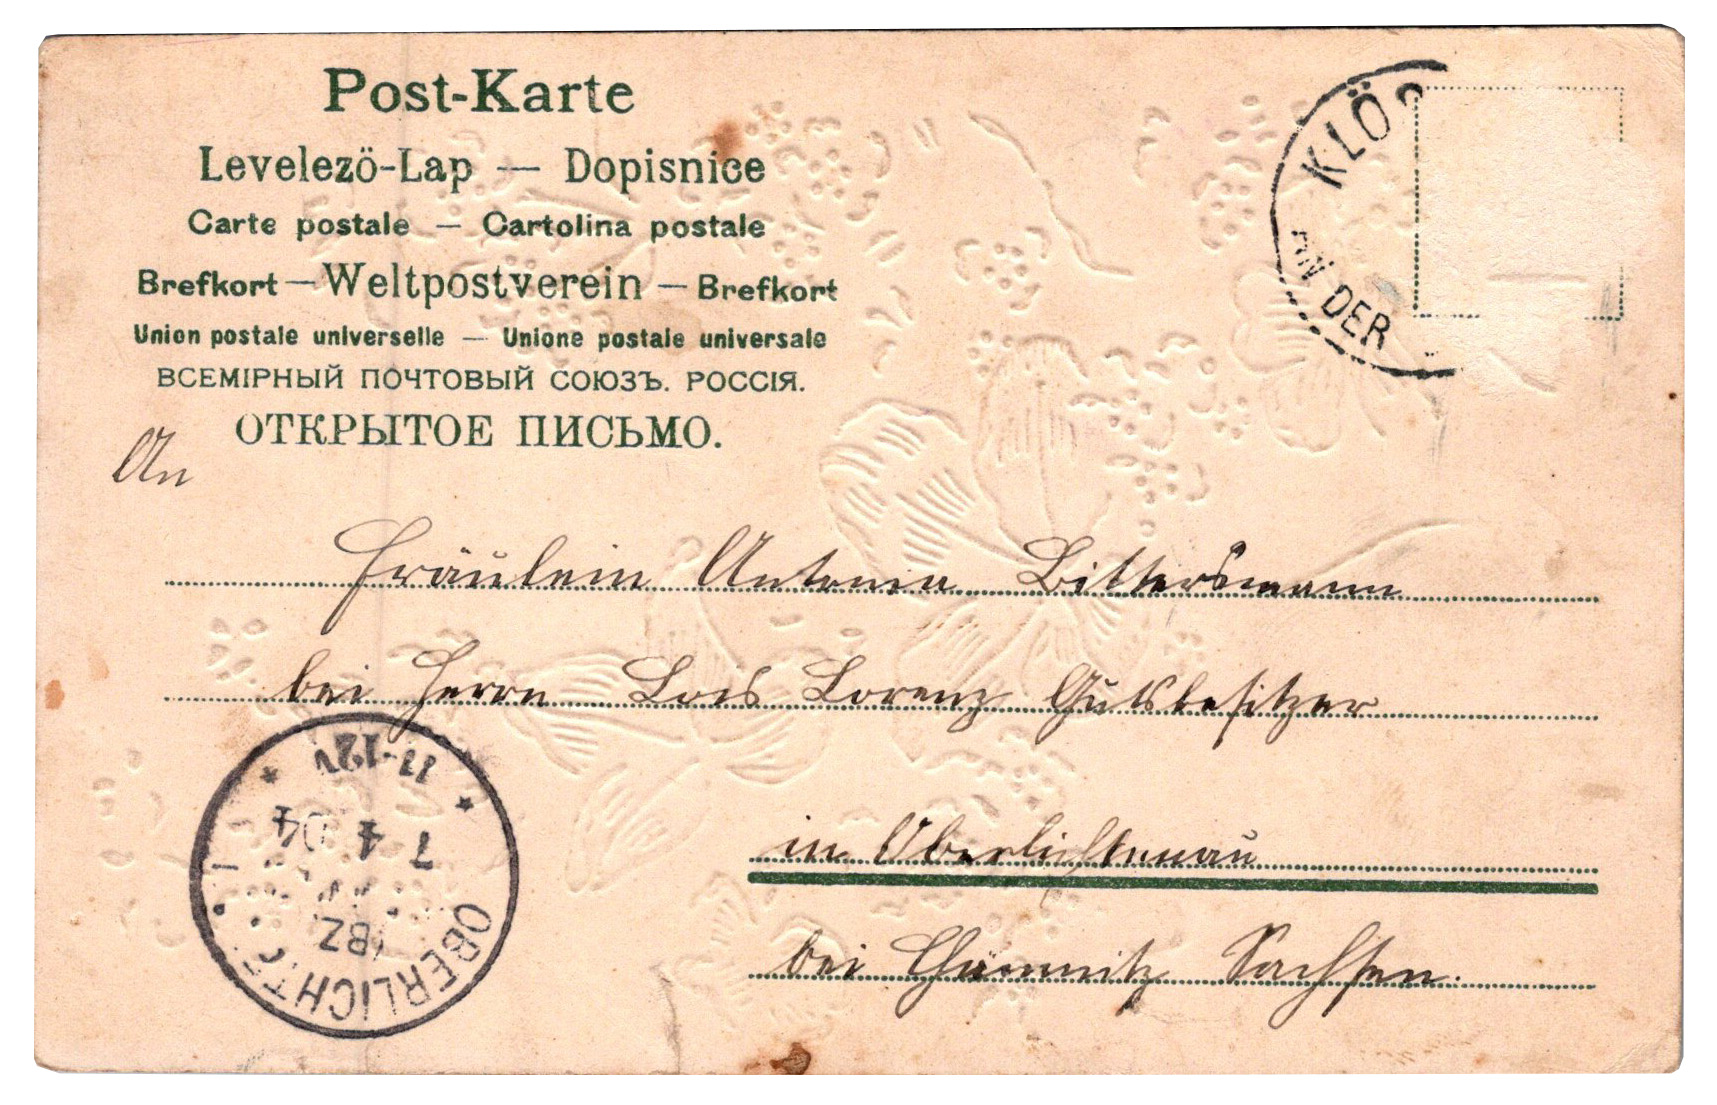 Post-Karte
Levelezö-Lap — Dopisnice
Carte postale — Cartolina postale
Brefkort — Weltpostverein — Brefkort
Union postale universelle — Unione postale universale
ВСЕМІРНЫЙ ПОЧТОВЫЙ СОЮЗЪ. РОССІЯ.
ОТКРЫТОЕ ПИСЬМО.
KLÖ
AN DER
An
Fräulein Antonia Bittersmann
bei Herrn Lois Lorenz Gutsbesitzer
in Oberlichtenau
bei Chämnitz Sachsen.
11-12V
7 4 04
BZ
OBERLICHTE